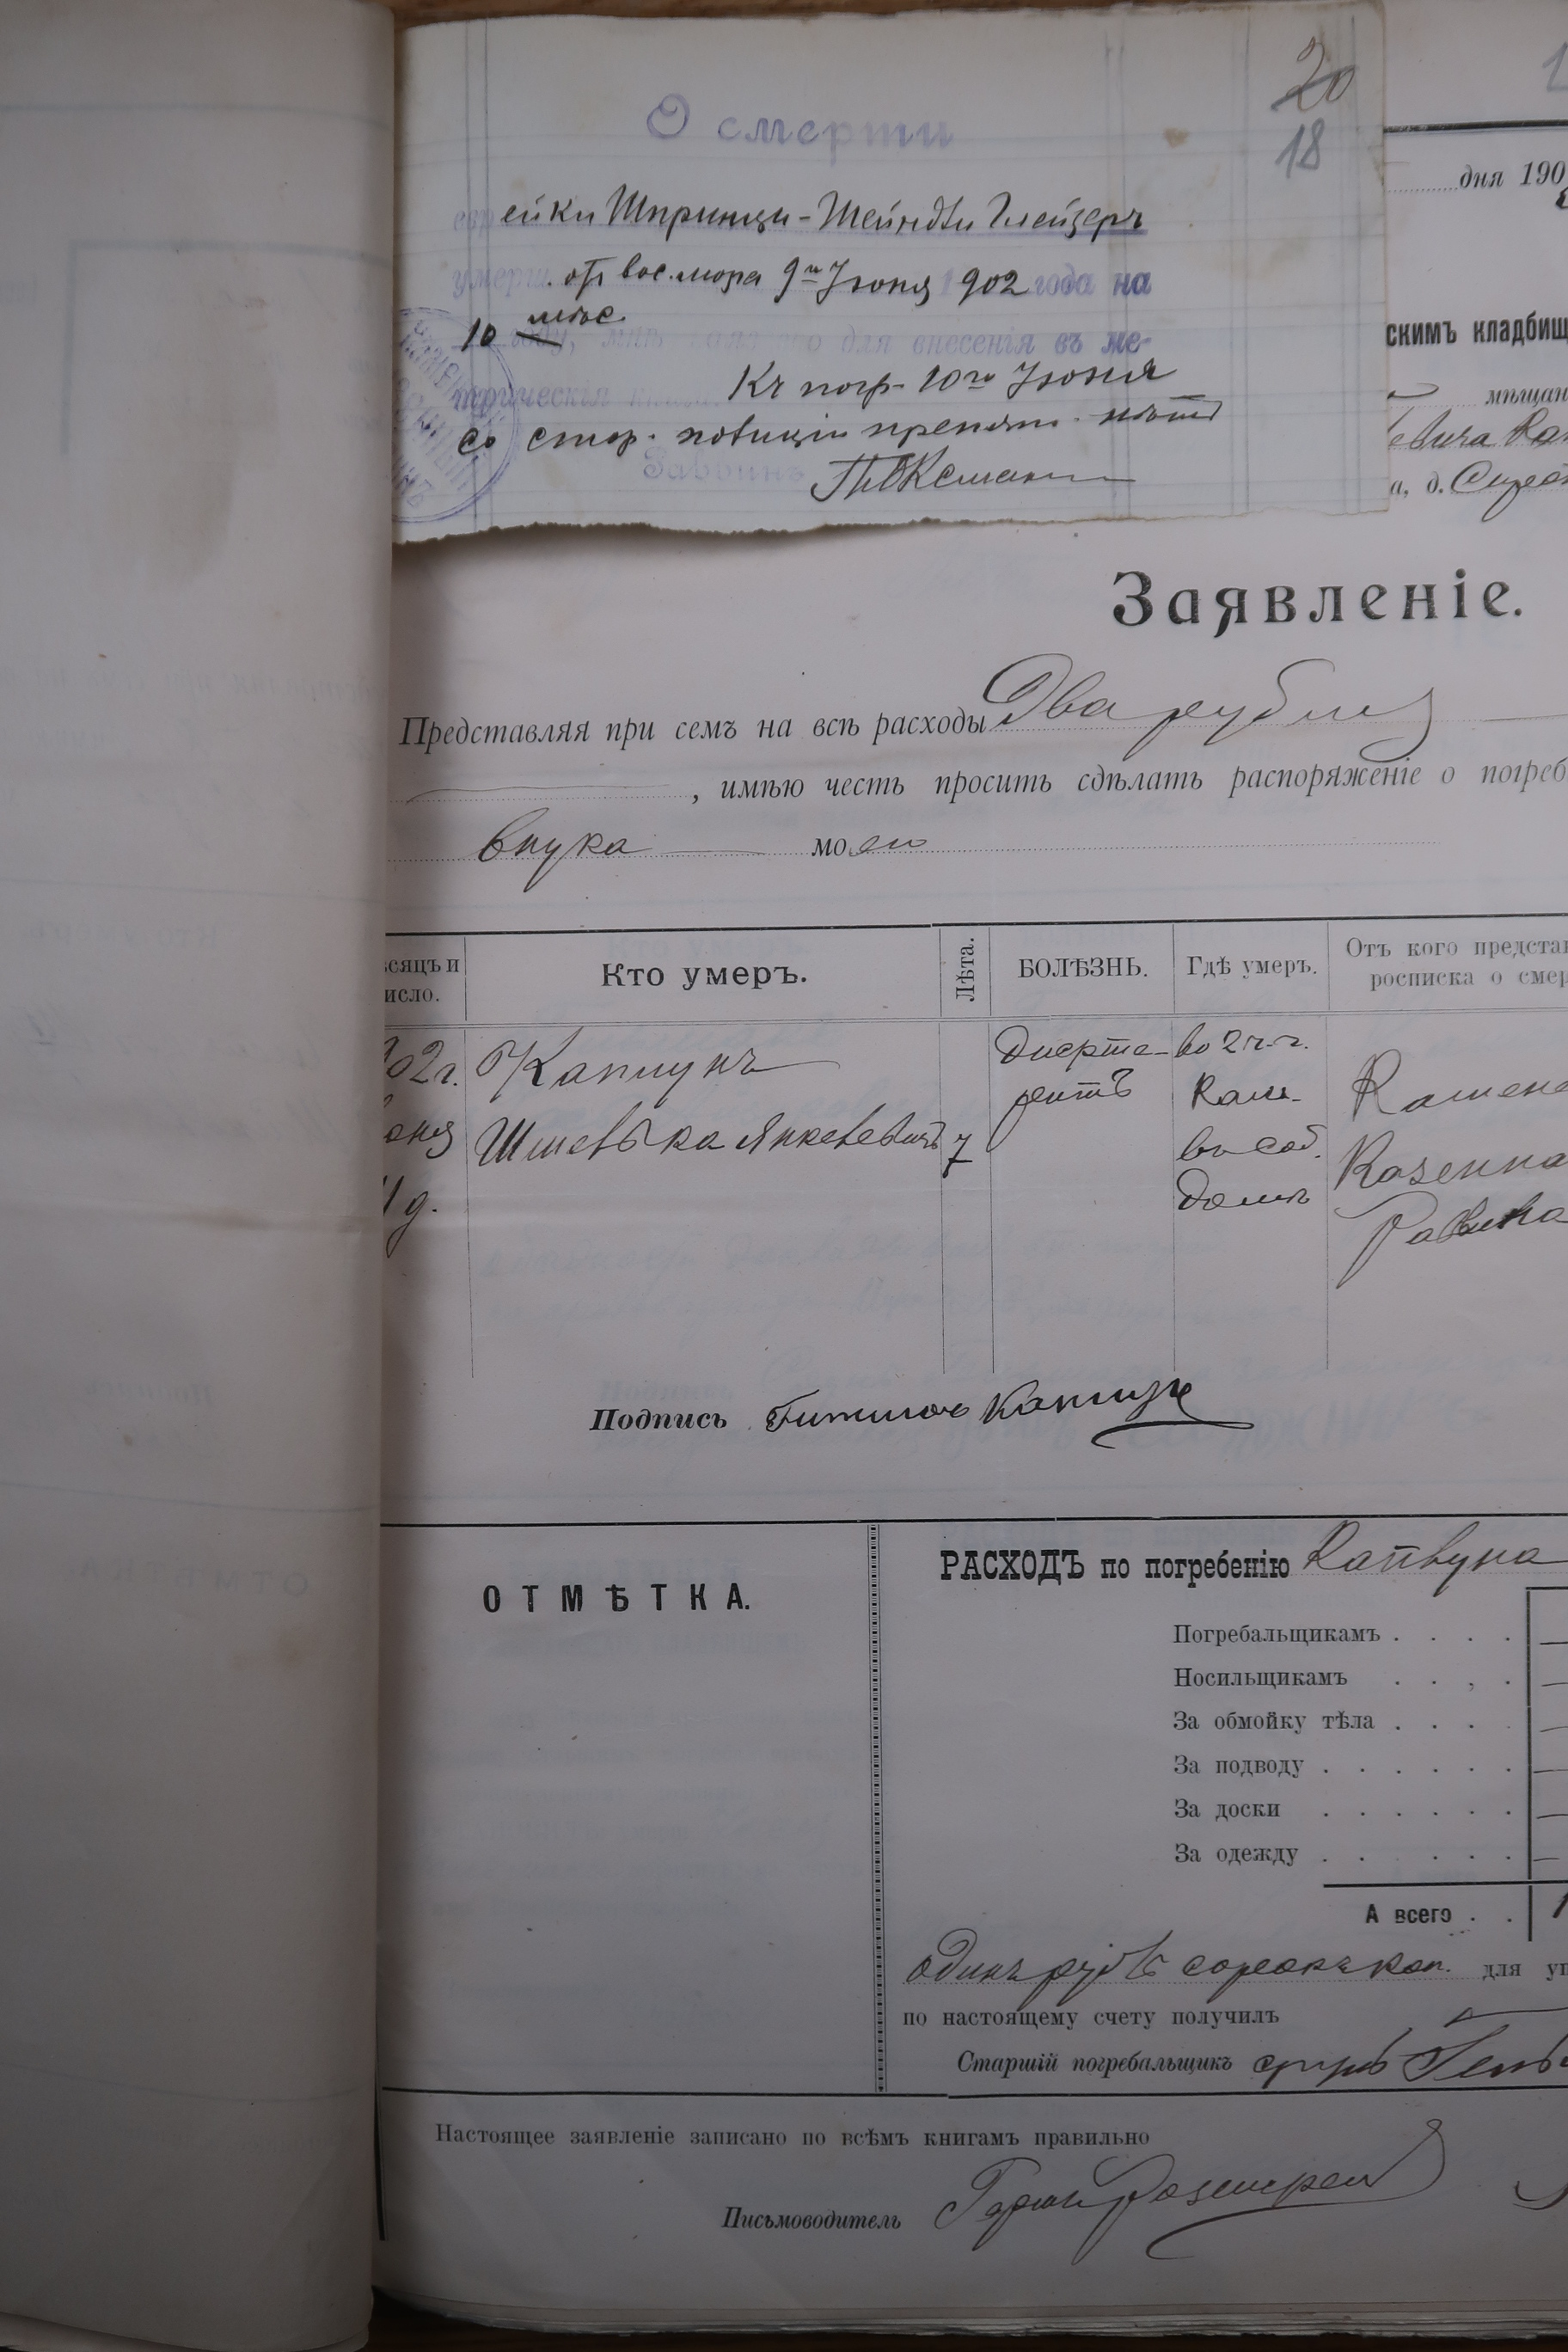 20
18
О смерти
еврейки Ширинци-Шейндли Глейзеръ
умерш. отъ вос. мозга 9го Июня 1902 года на
10 мѣс
году, мнѣ для внесенія въ ме-
трическія Къ погр. 10го Июня
со стор. полиціи препят. нѣтъ
дня 190
скимъ кладбищ
мѣщан
евича Кап
а, д.
Заявленіе.
Представляя при семъ на всѣ расходы Два рубля
, имѣю честь просить сдѣлать распоряженіе о погреб
внука моего
сяцъ и
исло.
Кто умеръ.
Лѣта.
БОЛѢЗНЬ.
Гдѣ умеръ.
Отъ кого представ
росписка о смер
02г. Каплунъ во 2 ч. г.
Кам. Камене
юня 7 въ соб. Казенна
11 д. домѣ Равина
Подпись
ОТМѢТКА.
РАСХОДЪ по погребенію Каплуна
Погребальщикамъ . . . .
Носильщикамъ . . , .
За обмойку тѣла . . . .
За подводу . . . . . .
За доски . . . . . .
За одежду . . . . . .
А всего . . 1
одинъ рубль сорокъ коп. для уп
по настоящему счету получилъ
Старшій погребальщикъ
Настоящее заявленіе записано по всѣмъ книгамъ правильно
Письмоводитель